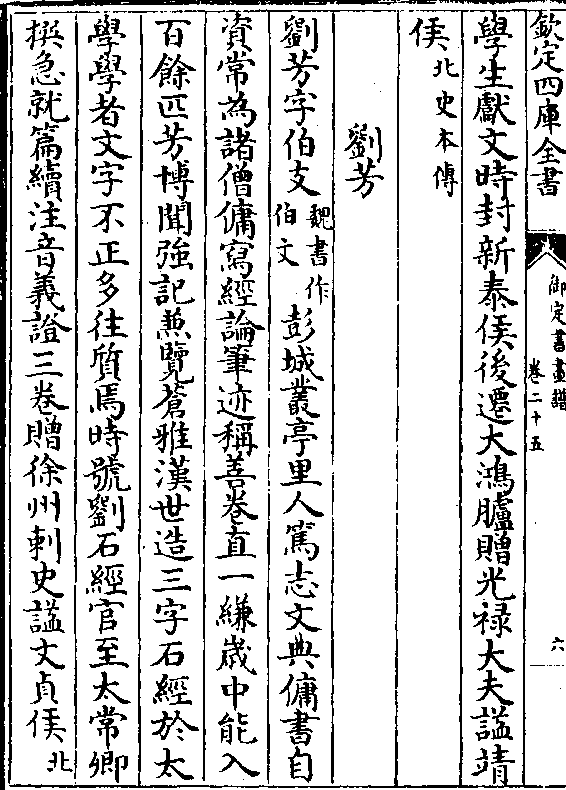 欽定四庫全書
御定書畫譜
卷二十五
六
學生獻文時封新泰侯後遷大鴻臚贈光禄大夫諡靖
侯北史本傳
劉芳
劉芳字伯支魏書作伯文彭城叢亭里人篤志文典傭書自
資常為諸僧傭寫經論筆迹稱善卷直一縑歲中能入
百餘匹芳博聞強記兼覽蒼雅漢世造三字石經於太
學學者文字不正多往質焉時號劉石經官至太常卿
撰急就篇續注音義證三卷贈徐州刺史諡文貞侯北